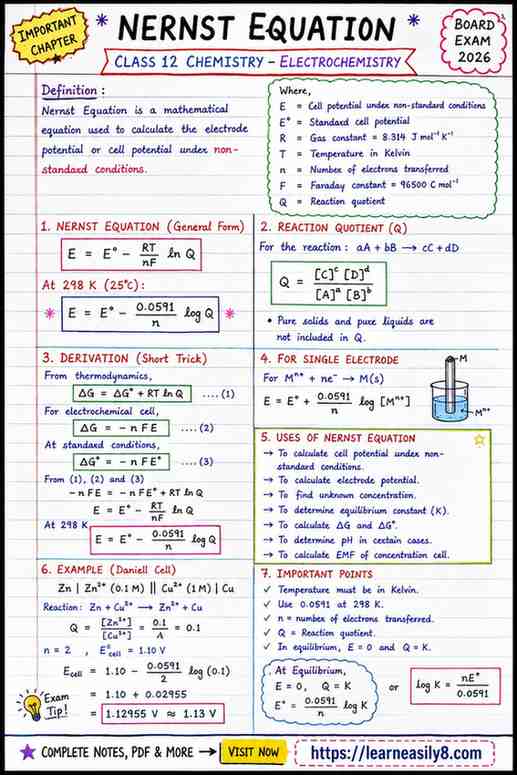 IMPORTANT CHAPTER
* NERNST EQUATION *
CLASS 12 CHEMISTRY – ELECTROCHEMISTRY
BOARD EXAM 2026
Definition :
Nernst Equation is a mathematical
equation used to calculate the electrode
potential or cell potential under non-
standard conditions.
Where,
E = Cell potential under non-standard conditions
E° = Standard cell potential
R = Gas constant = 8.314 J mol⁻¹ K⁻¹
T = Temperature in Kelvin
n = Number of electrons transferred
F = Faraday constant = 96500 C mol⁻¹
Q = Reaction quotient
1. NERNST EQUATION (General Form)
E = E° − RT/nF ln Q
At 298 K (25°C) :
* E = E° − 0.0591/n log Q *
2. REACTION QUOTIENT (Q)
For the reaction : aA + bB → cC + dD
Q = [C]ᶜ [D]ᵈ / [A]ᵃ [B]ᵇ
• Pure solids and pure liquids are
not included in Q.
3. DERIVATION (Short Trick)
From thermodynamics,
ΔG = ΔG° + RT ln Q .... (1)
For electrochemical cell,
ΔG = − n F E .... (2)
At standard conditions,
ΔG° = − n F E° .... (3)
From (1), (2) and (3)
− n FE = − n FE° + RT ln Q
E = E° − RT/nF ln Q
At 298 K
E = E° − 0.0591/n log Q
4. FOR SINGLE ELECTRODE
For Mⁿ⁺ + ne⁻ → M(s)
E = E° + 0.0591/n log [Mⁿ⁺]
M
Mⁿ⁺
5. USES OF NERNST EQUATION
→ To calculate cell potential under non-
standard conditions.
→ To calculate electrode potential.
→ To find unknown concentration.
→ To determine equilibrium constant (K).
→ To calculate ΔG and ΔG°.
→ To determine pH in certain cases.
→ To calculate EMF of concentration cell.
6. EXAMPLE (Daniell Cell)
Zn | Zn²⁺ (0.1 M) || Cu²⁺ (1 M) | Cu
Reaction: Zn + Cu²⁺ → Zn²⁺ + Cu
Q = [Zn²⁺]/[Cu²⁺] = 0.1/A = 0.1
n = 2 , E°cell = 1.10 V
Ecell = 1.10 − 0.0591/2 log (0.1)
= 1.10 + 0.02955
= 1.12955 V ≈ 1.13 V
Exam Tip!
7. IMPORTANT POINTS
✓ Temperature must be in Kelvin.
✓ Use 0.0591 at 298 K.
✓ n = number of electrons transferred.
✓ Q = Reaction quotient.
✓ In equilibrium, E = 0 and Q = K.
At Equilibrium,
E = 0, Q = K
E° = 0.0591/n log K
or
log K = nE°/0.0591
★ COMPLETE NOTES, PDF & MORE → VISIT NOW https://learneasily8.com